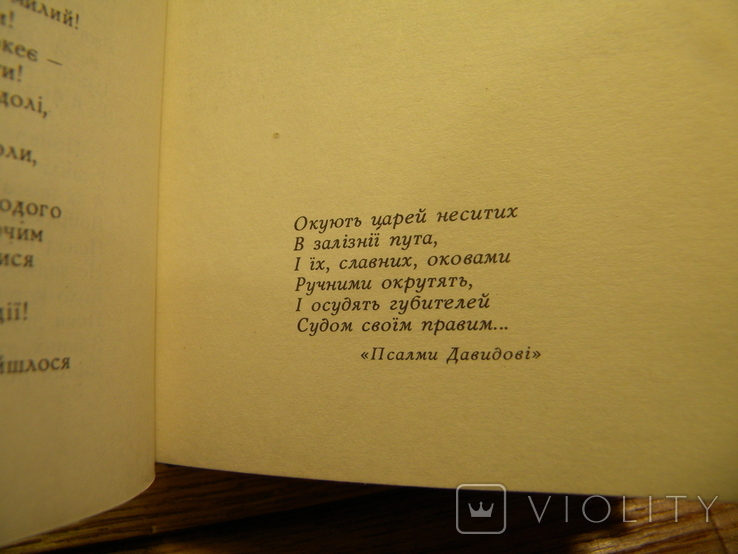 милий!
кеє –
долі,
одого
чим
ися
ції!
йшлося
Окують царей неситих
В залізнії пута,
І їх, славних, оковами
Ручними окрутять,
І осудять губителей
Судом своїм правим...
«Псалми Давидові»
VIOLITY